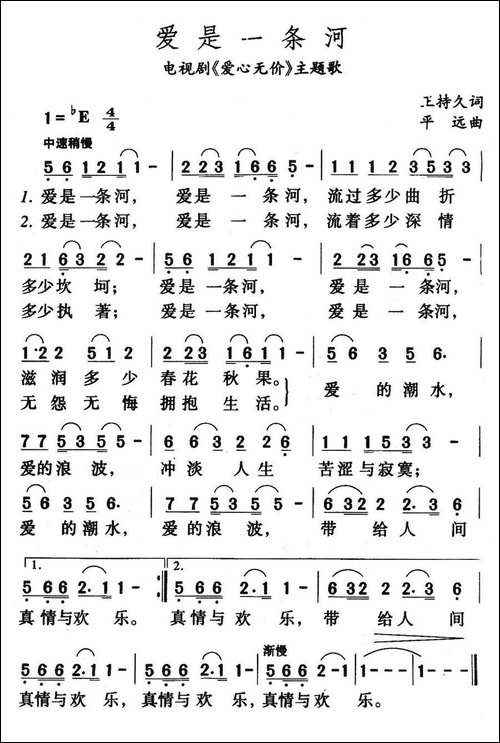 爱是一条河
电视剧《爱心无价》主题歌
王持久词
1=♭E 4/4
平远曲
中速稍慢
5 6 1 2 1 1 - | 2 2 3 1 6 6 5 - | 1 1 1 2 3 5 3 3
1. 爱是一条河， 爱是一条河， 流过多少曲折
2. 爱是一条河， 爱是一条河， 流着多少深情
2 1 6 3 2 2 - | 5 6 1 2 1 1 - | 2 2 3 1 6 6 5 -
多少坎坷； 爱是一条河， 爱是一条河，
多少执著； 爱是一条河， 爱是一条河，
1·2 2 5 1 2 | 2 2 3 1 6 1 1 - | 5 6 3 5 6·
滋润多少春花秋果。
爱的潮水，
无怨无悔拥抱生活。
7 7 5 3 5 5 - | 6 6 3 2 2 6 - | 1 1 1 5 3 3 -
爱的浪波， 冲淡人生 苦涩与寂寞；
5 6 3 5 6· | 7 7 5 3 5 5 - | 6 3 2 2 2·1 2
爱的潮水， 爱的浪波， 带给人间
1. 2.
5 6 6 2·1 1 - :| 5 6 6 2·1 1 - | 6 3 2 2 2·3 2
真情与欢乐。 真情与欢乐， 带给人间
渐慢
5 6 6 2·1 1 - | 5 6 6 2·1 1 - | 5 6 6 2·1 - - | 1 - - -
真情与欢乐，真情与欢乐，真情与欢乐。